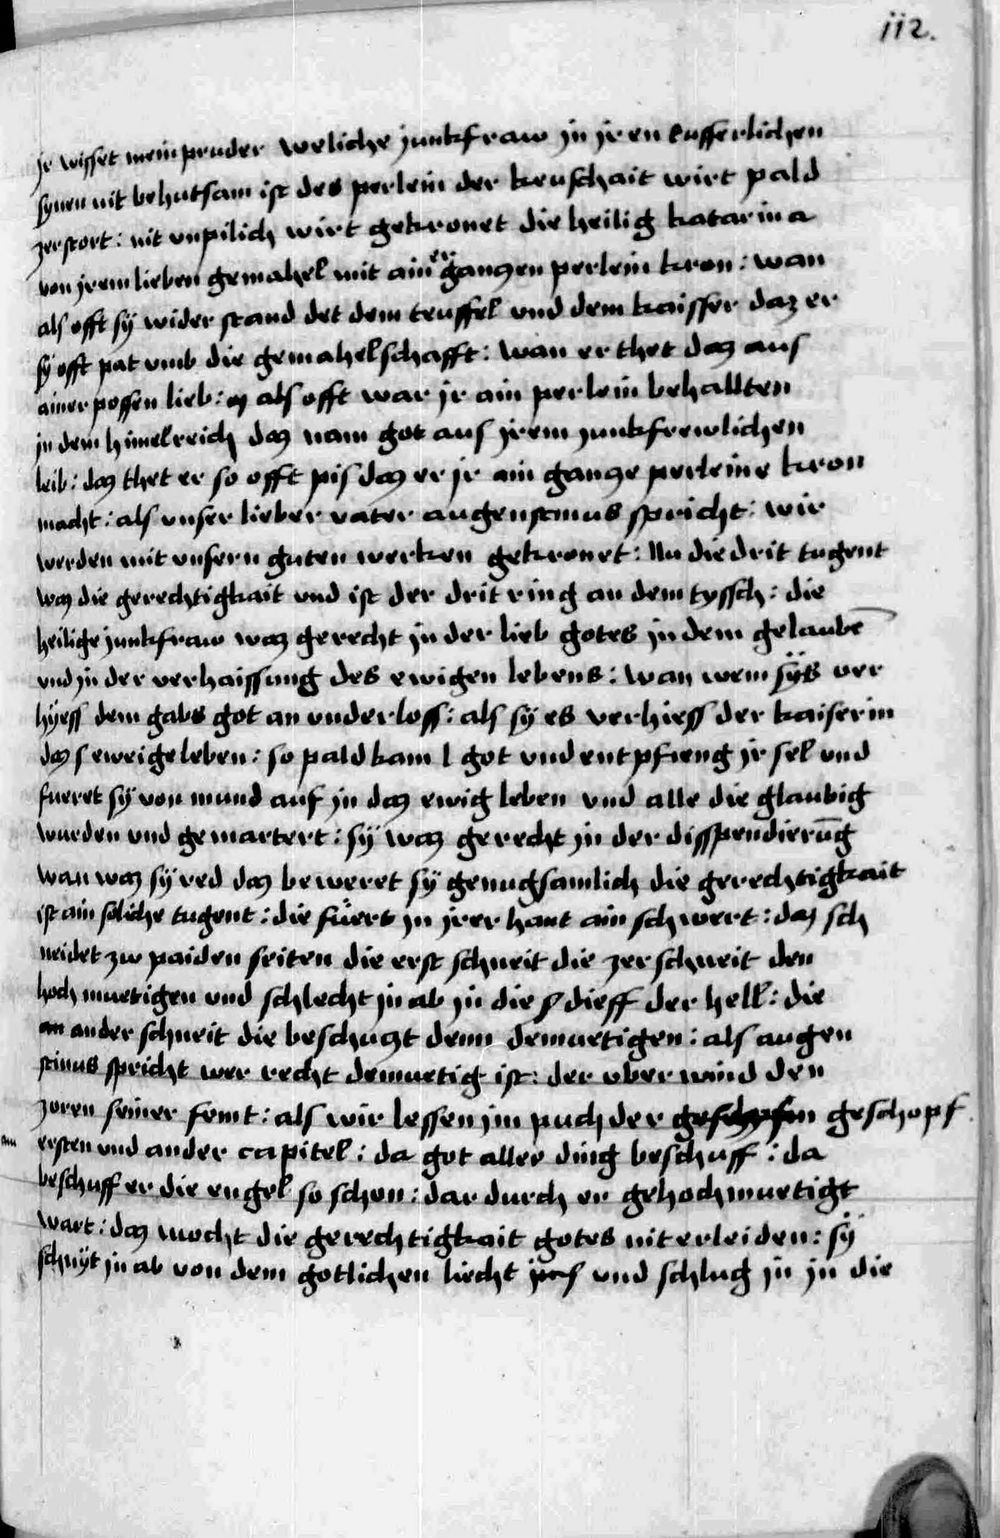 112.
jr wisset mein pruder weliche junkfraw jn jren eusserlichen
synen nit behutsam ist des perlein der keuschait wirt pald
zerstort : nit unpilich wirt gekronet die heilig katarina
von jrem lieben gemahel mit ainer ganczen perlein kron : wan
als offt sÿ wider stand det dem teuffel und dem kaisser daz er
sÿ offt pat umb die gemahelschafft : wan er thet daz aus
ainer possen lieb : als offt war jr ain perlein behallten
jn dem himelreich daz nam got aus jrem junkfrewlichen
leib : daz thet er so offt pis daz er jr ain gancze perleine kron
macht : als unser lieber vater augenstinus spricht : wir
werden mit unsern guten werken gekronet : Nu die drit tugent
waz die gerechtigkait und ist der drit ring an dem tyssch : die
heilige junkfraw waz gerecht jn der lieb gotes jn dem gelaubē
und jn der verhaissung des ewigen lebens : wan wem sÿs ver
hÿess dem gabs got an underloss : als sÿ es verhiess der kaiserin
daz s eweige leben : so pald kam l got und entpfieng jr sel und
fueret sÿ von mund auf jn daz ewig leben und alle die glaubig
wurden und gemartert : sÿ waz gerecht jn der disspendierūg
wan waz sÿ red daz beweret sÿ genugsamlich die gerechtigkait
ist ain soliche tugent : die fuert jn jrer hant ain schwert : daz sch
neidet zw paiden seiten die erst schneit die zerschneit den
hochmuetigen und schlecht jn ab jn die dieff der hell : die
ander schneit die beschuczt denn demuetigen : als augen
stinus spricht wer recht demuetig ist : der uberwind den
zoren seiner feint : als wir lessen jm puch der geschopf
am ersten und ander capitel : da got aller ding beschuff : da
beschuff er die engel so schon : dar durch er gehochmuetigt
wart : daz mocht die gerechtigkait gotes nit erleiden : sÿ
schnÿt jn ab von dem gotlichen liecht und schlug jn jn die